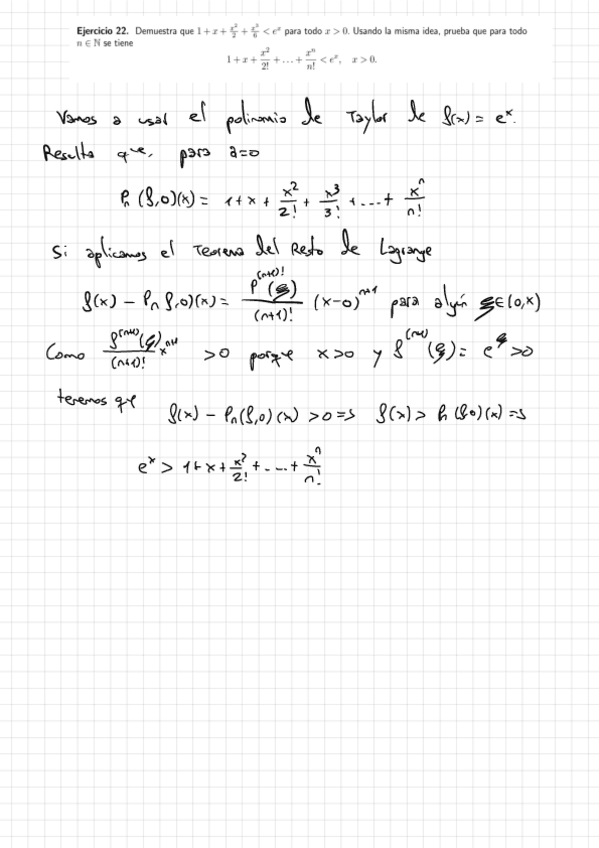 Ejercicio 22. Demuestra que 1 + x + x²/2 + x³/6 < eˣ para todo x > 0. Usando la misma idea, prueba que para todo
n ∈ ℕ se tiene
1 + x + x²/2! + ... + xⁿ/n! < eˣ, x > 0.
Vamos a usar el polinomio de Taylor de f(x) = eˣ.
Resulta que, para a=0
Pₙ(f,0)(x) = 1+x+ x²/2! + x³/3! + ... + xⁿ/n!
Si aplicamos el Teorema del Resto de Lagrange
f(x) - Pₙ f,0)(x) = f⁽ⁿ⁺¹⁾!(ξ)/(n+1)! (x-0)ⁿ⁺¹ para algún ξ∈(0,x)
Como f⁽ⁿ⁺¹⁾(ξ)/(n+1)! xⁿ⁺¹ >0 porque x>0 y f⁽ⁿ⁺¹⁾(ξ) = e^ξ >0
tenemos que
f(x) - Pₙ(f,0)(x) >0 => f(x) > Pₙ(f,0)(x) =>
eˣ > 1+x+ x²/2! + ... + xⁿ/n!